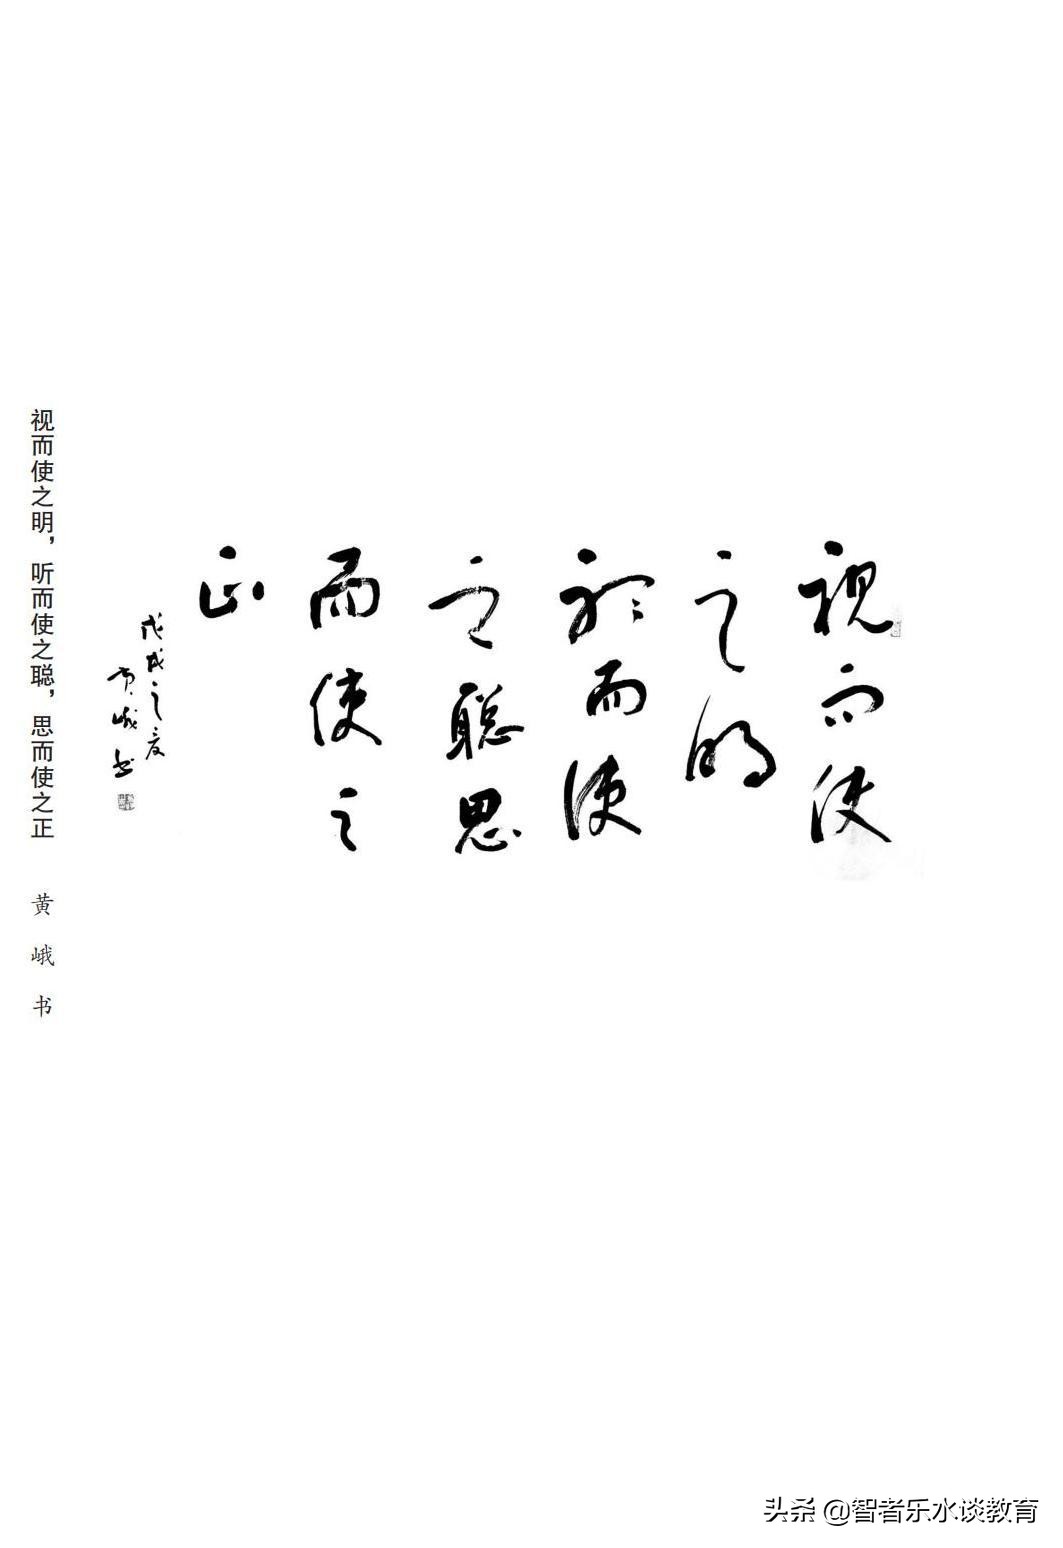 視而使
之明
聽而使
之聰思
而使之
正
戊戌之夏
黄峨书
视而使之明，听而使之聪，思而使之正 黄峨书
头条 @智者乐水谈教育